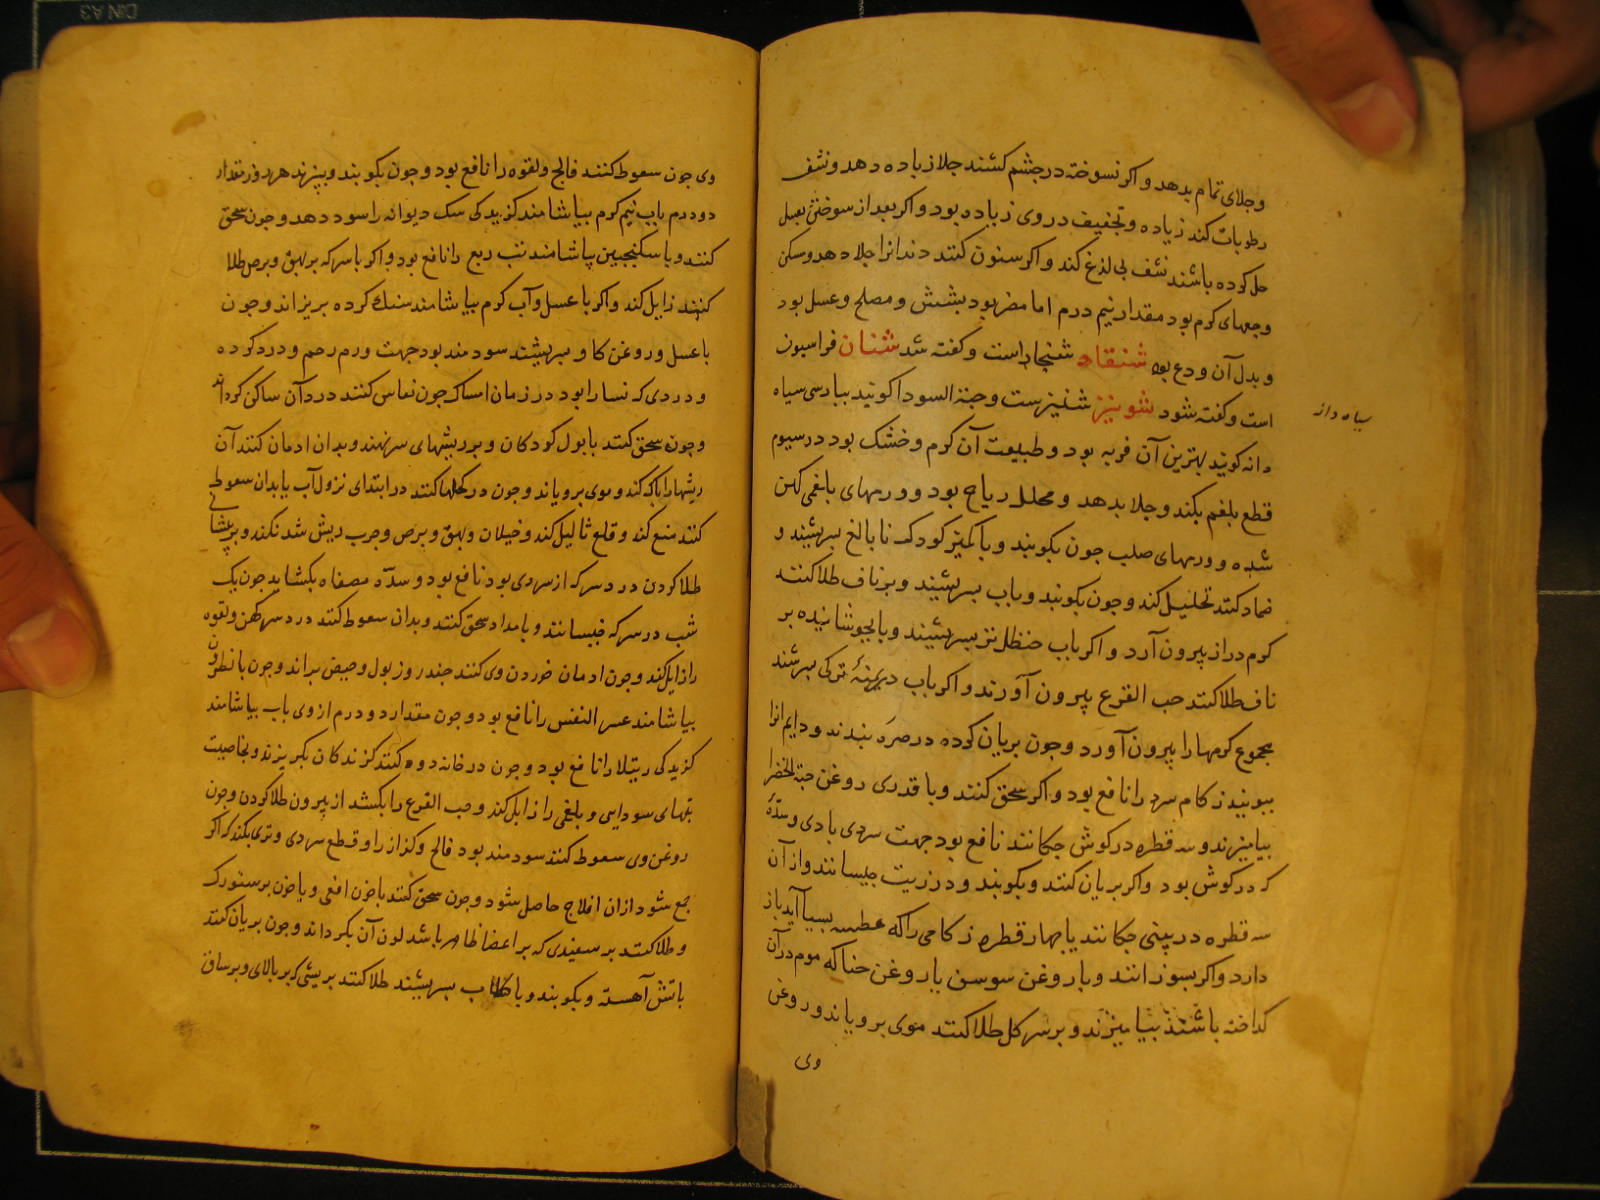 وجلای تمام بدهد و اکر نسوخته درجشم کشند جلا زیاده دهد ونشف
رطوبات کند زیاده وتجفیف در وی زیاده بود و اکر بعد از سوختن بعسل
حل کرده باشند نشف بی لذغ کند و اکر سنون کنند دندانرا جلا دهد وسکن
وجعهای کرم بود مقدار نیم درم اما مضر بود بشش و مصلح وعسل بود
و بدل آن ودع بود شنقاد شنجار است وکفته شد شنان فراسیون
است وکفته شود شونیز شنیز ست وحبة السودا کویند بپارسی سیاه
سیاه دانه
دانه کویند بهترین آن فربه بود و طبیعت آن کرم وخشک بود در سیوم
قطع بلغم بکند وجلا بدهد ومحلل ریاح بود و ورمهای بلغمی کهن
شده و ورمهای صلب جون بکوبند و با کمیز کودک نا بالغ بسرشند و
ضماد کنند تحلیل کند وجون بکوبند وباب بسرشند وبر ناف طلا کنند
کرم دراز بیرون آرد و اکر باب حنظل تر بسرشند ویا بجوشانیده بر
ناف طلا کنند حب القرع بیرون آورند و اکر باب درمنهٔ ترکی بسرشند
مجموع کرمها را بیرون آورد وجون بریان کرده در صره بندند ودایم انرا
ببویند زکام سرد را نافع بود و اکر سحق کنند وبا قدری روغن حبة الخضرا
بیامیزند وسه قطره درکوش جکانند نافع بود جهت سردی بادی وسدهٔ
که درکوش بود واکر بریان کنند وبکوبند ودر زیت خیسانند واز آن
سه قطره در بینی جکانند یا جهار قطره زکامی راکه عطسه بسیار آید باز
دارد واکر بسوزانند وبا روغن سوسن یا روغن حنا که موم درآن
کداخته باشند بیامیزند وبرسر کل طلا کنند موی برویاند و روغن
وی
وی جون سعوط کنند فالج ولقوه را نافع بود وجون بکوبند وبپزند هر روز مقدار
دودرم باب نیم کرم بیاشامند کزیدکی سک دیوانه را سود دهد وجون سحق
کنند وبا سکنجبین بیاشامند تب ربع را نافع بود واکر با سرکه بر بهق وبرص طلا
کنند زایل کند واکر با عسل وآب کرم بیاشامند سنک کرده بریزاند وجون
با عسل وروغن کاو بسرشند سودمند بود جهت ورم رحم ودرد کرده
ودردی که نسا را بود در زمان امساک جون نفاس کنند درد آن ساکن کرداند
وجون سحق کنند با بول کودکان وبر ریشهای سر نهند وبدان ادمان کنند آن
ریشها را پاک کند وموی برویاند وجون در کحلها کنند در ابتدای نزول آب یا بدان سعوط
کنند منع کند وقلع ثالیل کند وخیلان وبهق وبرص وجرب ریش شد نکند وبر پیشانی
طلا کردن درد سرکه از سردی بود نافع بود وسدّه مصفاه بکشاید جون یک
شب در سرکه خیسانند وبامداد سحق کنند وبدان سعوط کنند درد سرکهن ولقوه
را زایل کند وجون ادمان خوردن وی کنند جند روز بول وحیض براند وجون با نطرون
بیاشامند عسر النفس را نافع بود وجون مقدار دو درم از وی باب بیاشامند
کزیدکی رتیلا را نافع بود وجون در خانه دود کنند کزندکان بکریزند وبخاصیت
تبهای سوداییی وبلغمی را زایل کند وحب القرع را بکشد از بیرون طلا کردن وجون
روغن وی سعوط کنند سودمند بود فالج وکزاز را وقطع سردی وتری بکند که اکر
جمع شود ازان افلاج حاصل شود وجون سحق کنند با خون افعی ویا خون پرستورک
وطلا کنند بر سفیدی که بر اعضا ظاهر باشد لون آن بکرداند وجون بریان کنند
باتش آهسته وبکوبند وبا کلاب بسرشند طلا کنند بر ریشی که بر بالای وبر ساق